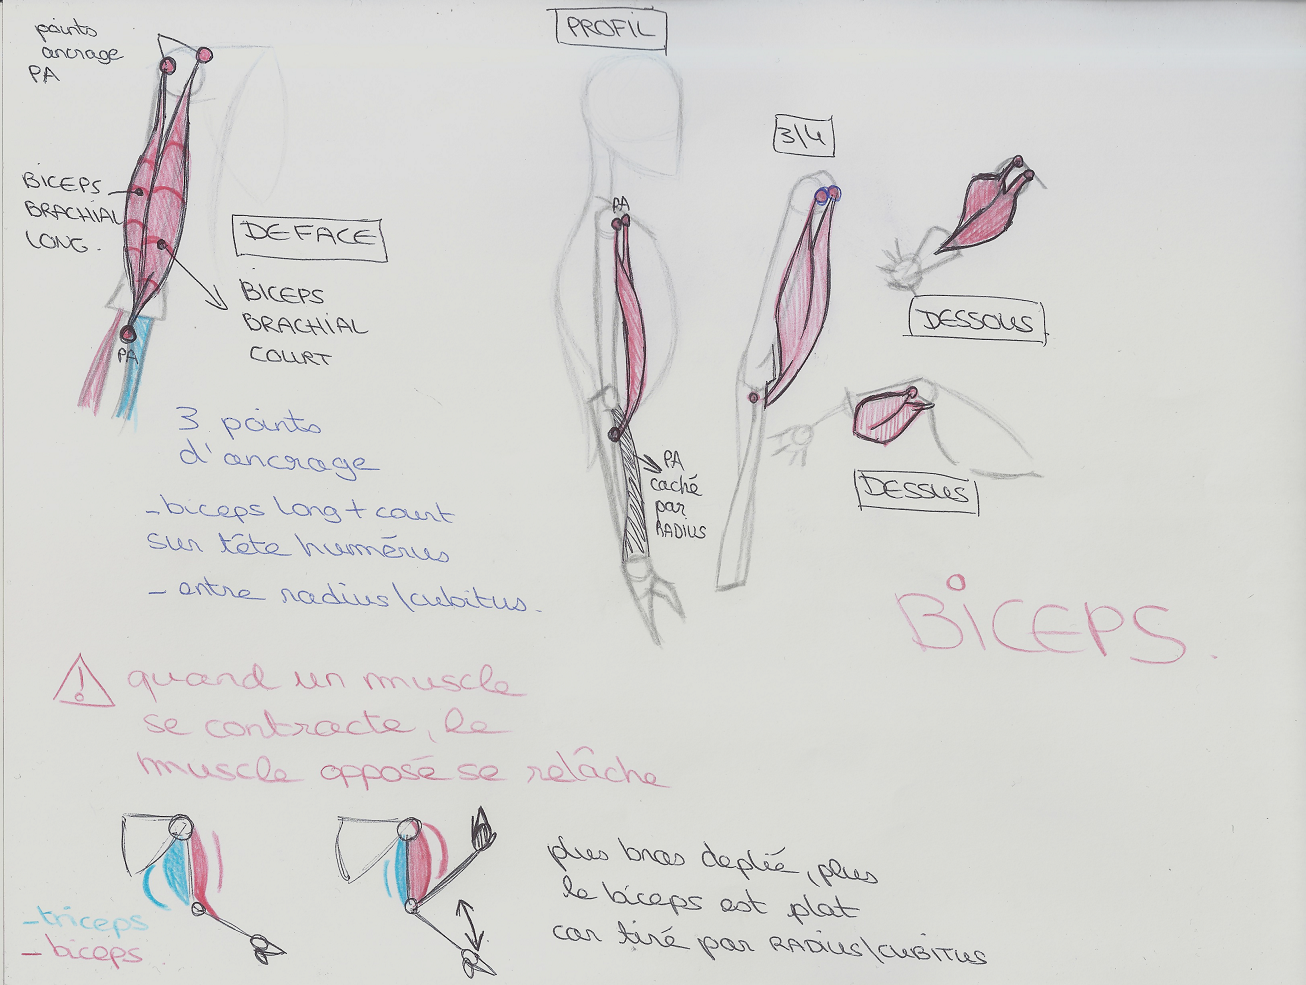 points
ancrage
PA
BICEPS
BRACHIAL
LONG.
DE FACE
BICEPS
BRACHIAL
COURT
PA
3 points
d'ancrage
- biceps long + court
sur tête humérus
- entre radius/cubitus.
PROFIL
PA
PA
caché
par
RADIUS
3/4
DESSOUS
DESSUS
BICEPS.
! quand un muscle
se contracte, le
muscle opposé se relâche
- triceps
- biceps
plus bras deplié, plus
le biceps est plat
car tiré par RADIUS/CUBITUS